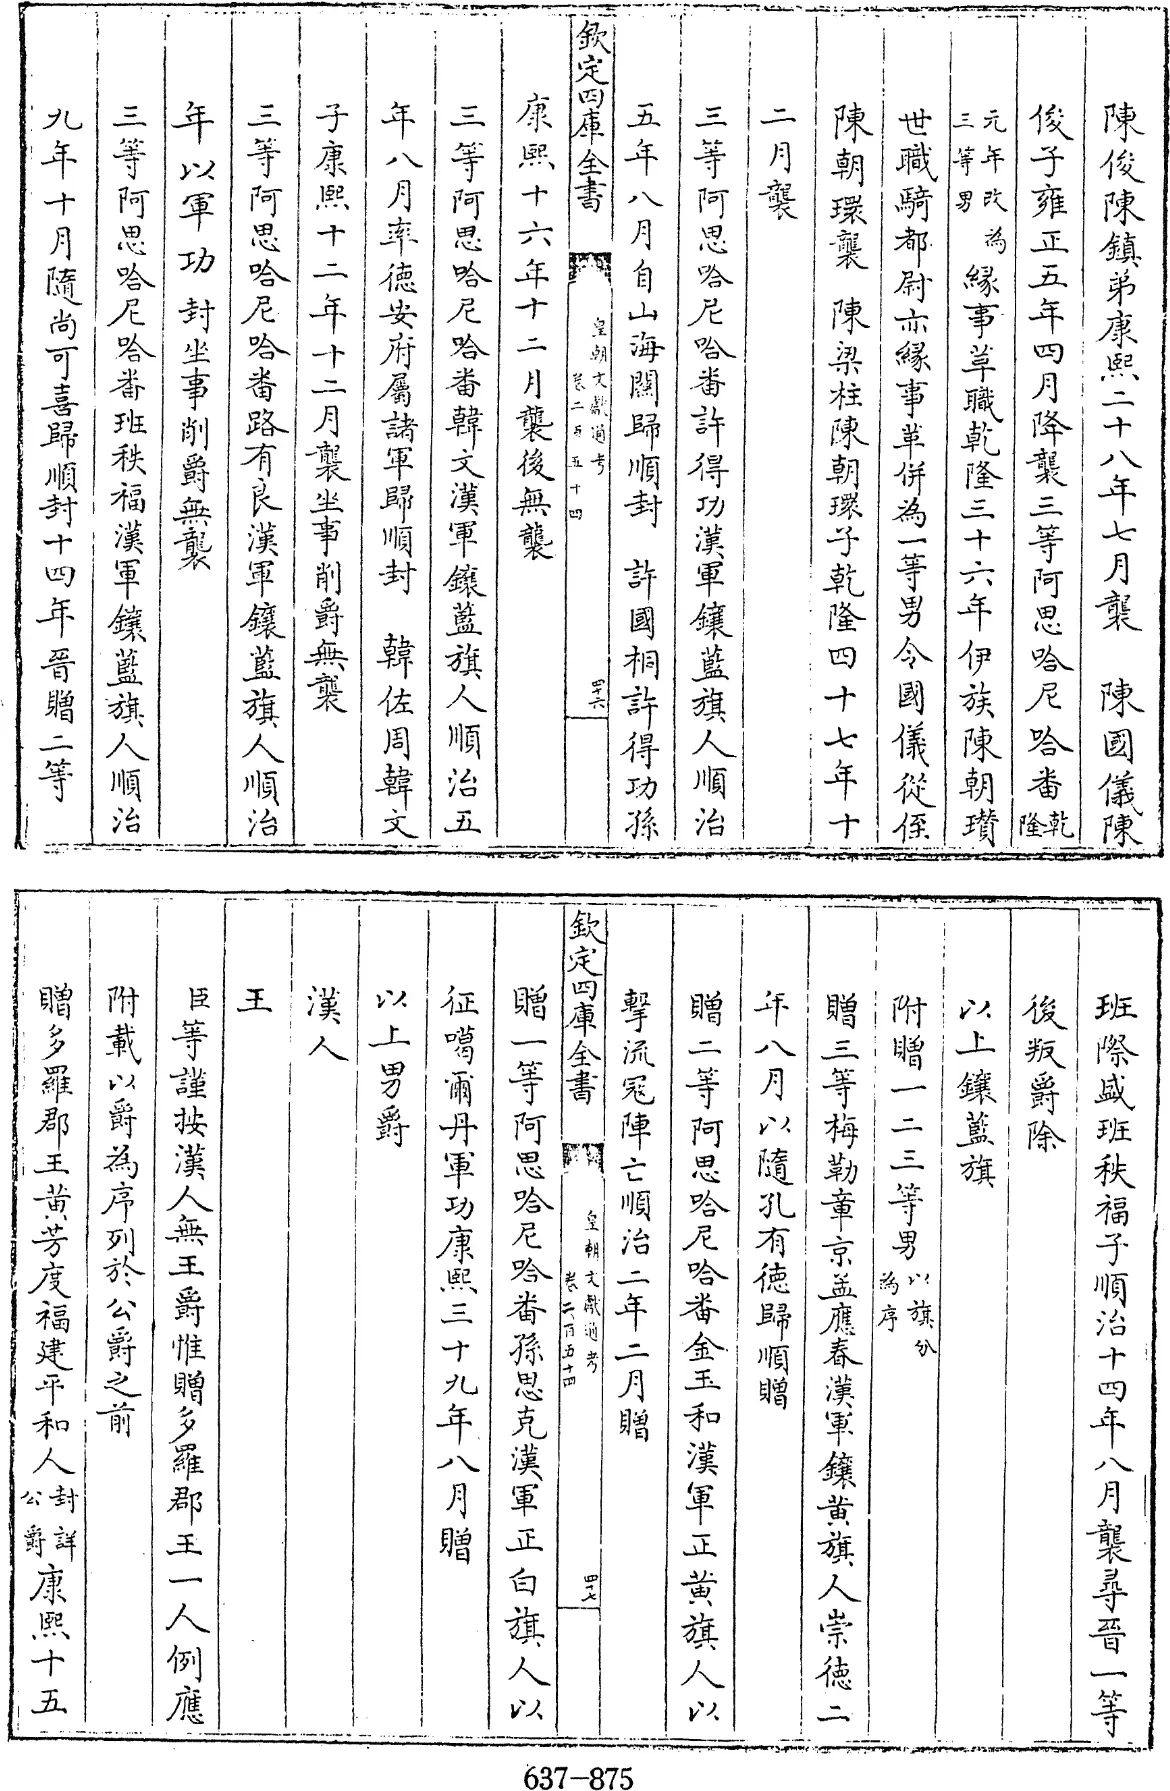 陳俊陳鎮弟康熙二十八年七月襲　陳國儀陳
俊子雍正五年四月降襲三等阿思哈尼哈番乾隆
元年改為三等男緣事革職乾隆三十六年伊族陳朝瓚
世職騎都尉亦緣事革併為一等男令國儀從侄
陳朝環襲　陳梁柱陳朝環子乾隆四十七年十
二月襲
三等阿思哈尼哈番許得功漢軍鑲藍旗人順治
五年八月自山海關歸順封　許國桐許得功孫
欽定四庫全書　皇朝文獻通考卷二百五十四　四十六
康熙十六年十二月襲後無襲
三等阿思哈尼哈番韓文漢軍鑲藍旗人順治五
年八月率德安府屬諸軍歸順封　韓佐周韓文
子康熙十二年十二月襲坐事削爵無襲
三等阿思哈尼哈番路有良漢軍鑲藍旗人順治
年以軍功　封坐事削爵無襲
三等阿思哈尼哈番班秩福漢軍鑲藍旗人順治
九年十月隨尚可喜歸順封十四年晉贈二等
班際盛班秩福子順治十四年八月襲尋晉一等
後叛爵除
以上鑲藍旗
附贈一二三等男以旗分為序
贈三等梅勒章京孟應春漢軍鑲黃旗人崇德二
年八月以隨孔有德歸順贈
贈二等阿思哈尼哈番金玉和漢軍正黃旗人以
擊流冦陣亡順治二年二月贈
欽定四庫全書　皇朝文獻通考卷二百五十四　四十七
贈一等阿思哈尼哈番孫思克漢軍正白旗人以
征噶爾丹軍功康熙三十九年八月贈
以上男爵
漢人
王
臣等謹按漢人無王爵惟贈多羅郡王一人例應
附載以爵為序列於公爵之前
贈多羅郡王黃芳度福建平和人封詳公爵康熙十五
637-875